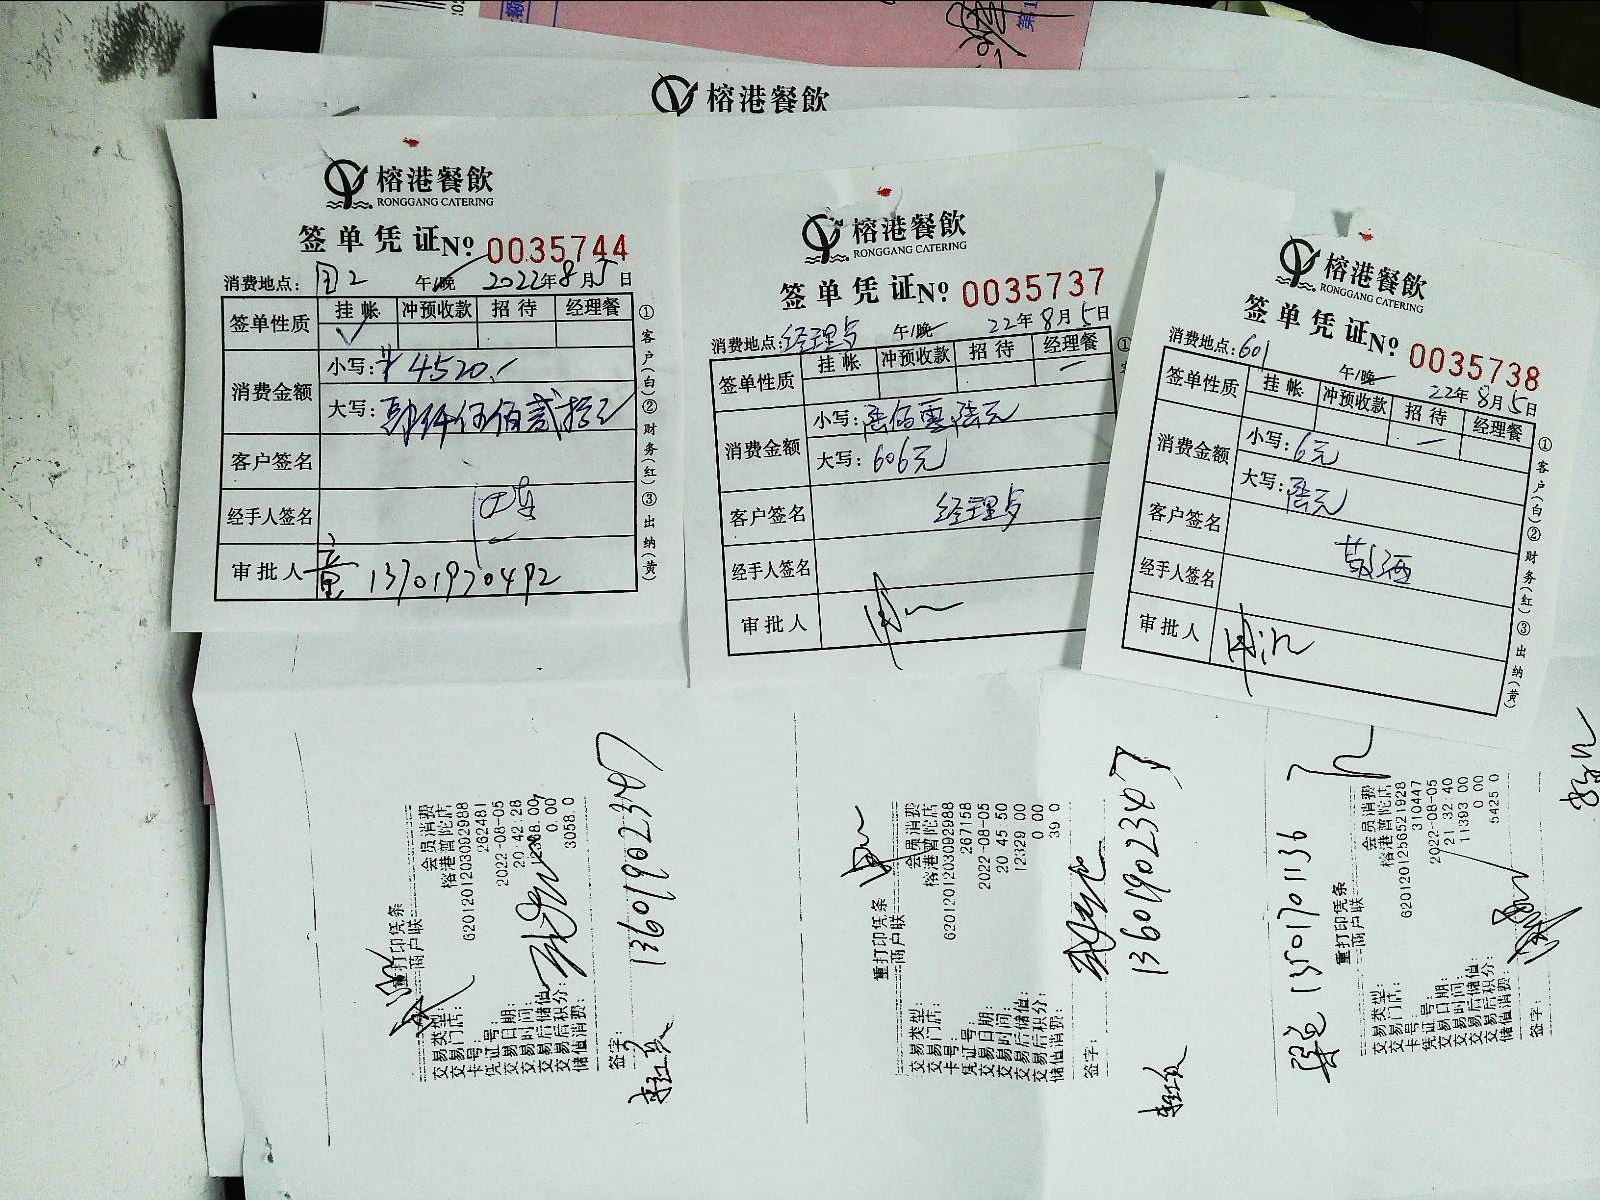 榕港餐飲
榕港餐飲
RONGGANG CATERING
签单凭证 № 0035744
消费地点: 午/晚 2022年8月5日
签单性质 挂帐 冲预收款 招待 经理餐
消费金额 小写: ¥4520.
大写: 肆仟伍佰贰拾元
客户签名
经手人签名
审批人 童 13701970492
①客户(白)②财务(红)③出纳(黄)
榕港餐飲
RONGGANG CATERING
签单凭证 № 0035737
消费地点: 午/晚 22年8月5日
签单性质 挂帐 冲预收款 招待 经理餐
消费金额 小写: 陆佰零陆元
大写: 606元
客户签名
经手人签名
审批人
①
榕港餐飲
RONGGANG CATERING
签单凭证 № 0035738
消费地点: 601
午/晚 22年8月5日
签单性质 挂帐 冲预收款 招待 经理餐
消费金额 小写: 6元
大写: 陆元
客户签名
经手人签名 敬酒
审批人
①客户(白)②财务(红)③出纳(黄)
重打印凭条
商户联
交易类型: 会员消费
交易门店: 榕港普陀店
卡号: 6201201203092988
凭证号: 262481
交易日期: 2022-08-05
交易时间: 20 42 28
交易后储值: 12368.00
交易后积分: 0.00
储值消费: 3058.0
签字:
13601902347
重打印凭条
商户联
交易类型: 会员消费
交易门店: 榕港普陀店
卡号: 6201201203092988
凭证号: 267158
交易日期: 2022-08-05
交易时间: 20 45 50
交易后储值: 12329 00
交易后积分: 0 00
储值消费: 39 0
签字:
13601902347
13501701136
重打印凭条
商户联
交易类型: 会员消费
交易门店: 榕港普陀店
卡号: 6201201256521928
凭证号: 310447
交易日期: 2022-08-05
交易时间: 21 32 40
交易后储值: 11393 00
交易后积分: 0 00
储值消费: 5425 0
签字: